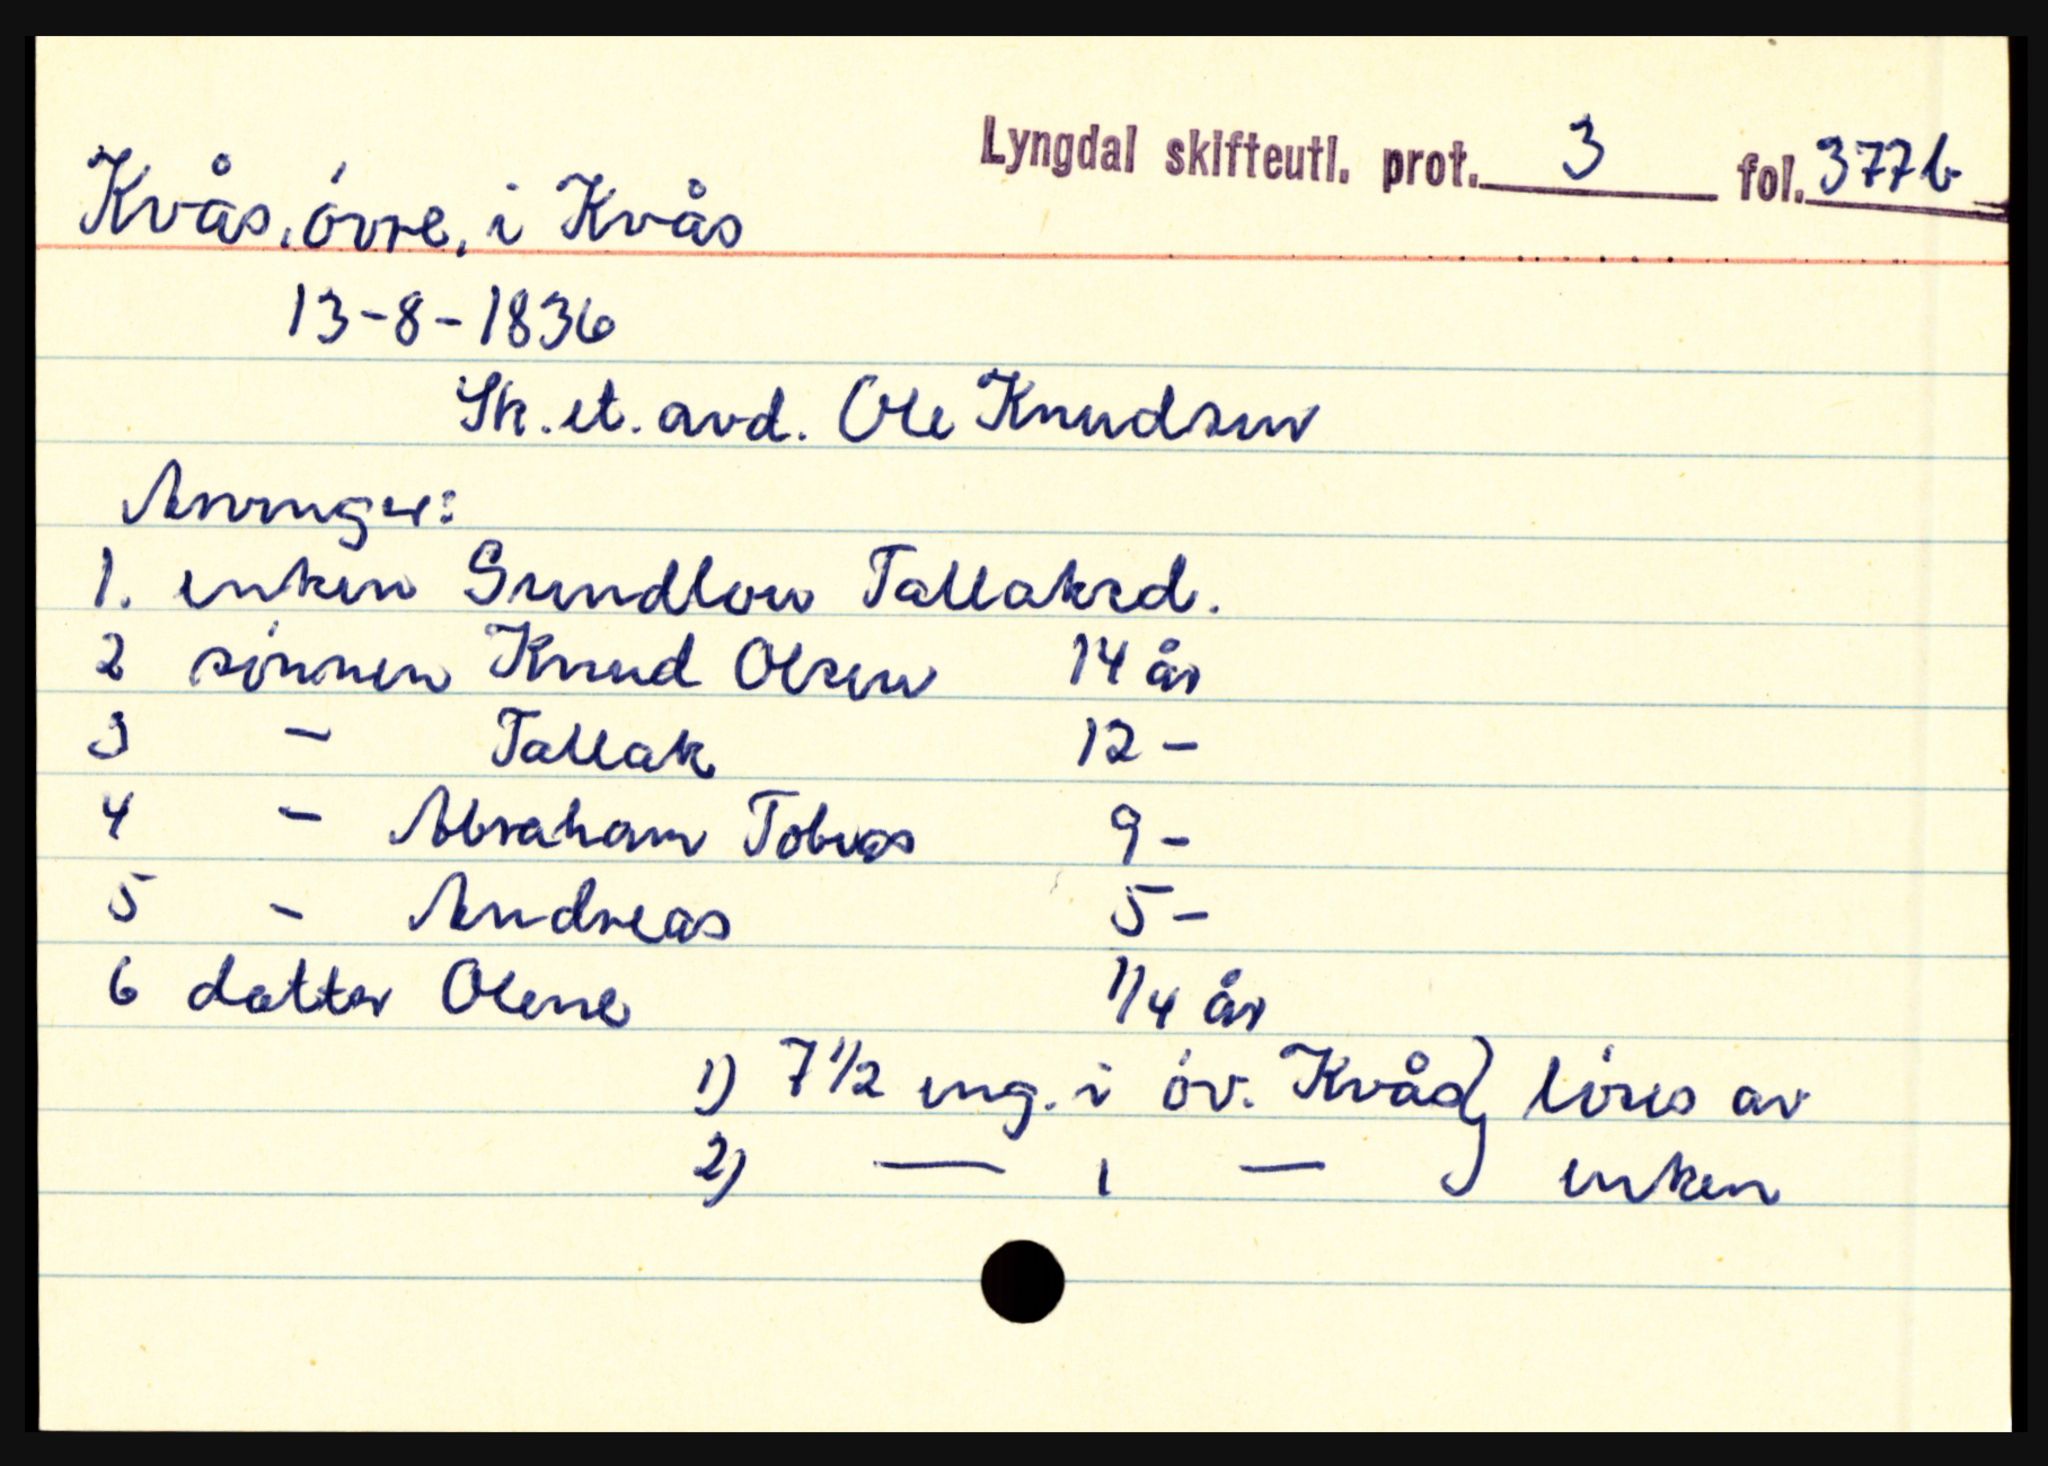 Lyngdal skifteutl. prot. 3 fol. 377b
Kvås, övre, i Kvås
13-8-1836
Sk. et. avd. Ole Knudsen
Arvinger:
1. enken Gundlow Tallaksd.
2 sönnen Knud Olsen 14 år
3 - Tallak 12 -
4 - Abraham Tobias 9 -
5 - Andreas 5 -
6 datter Olene 1/4 år
1) 7 1/2 eng. i öv. Kvås } löses av
2) — i — } enken